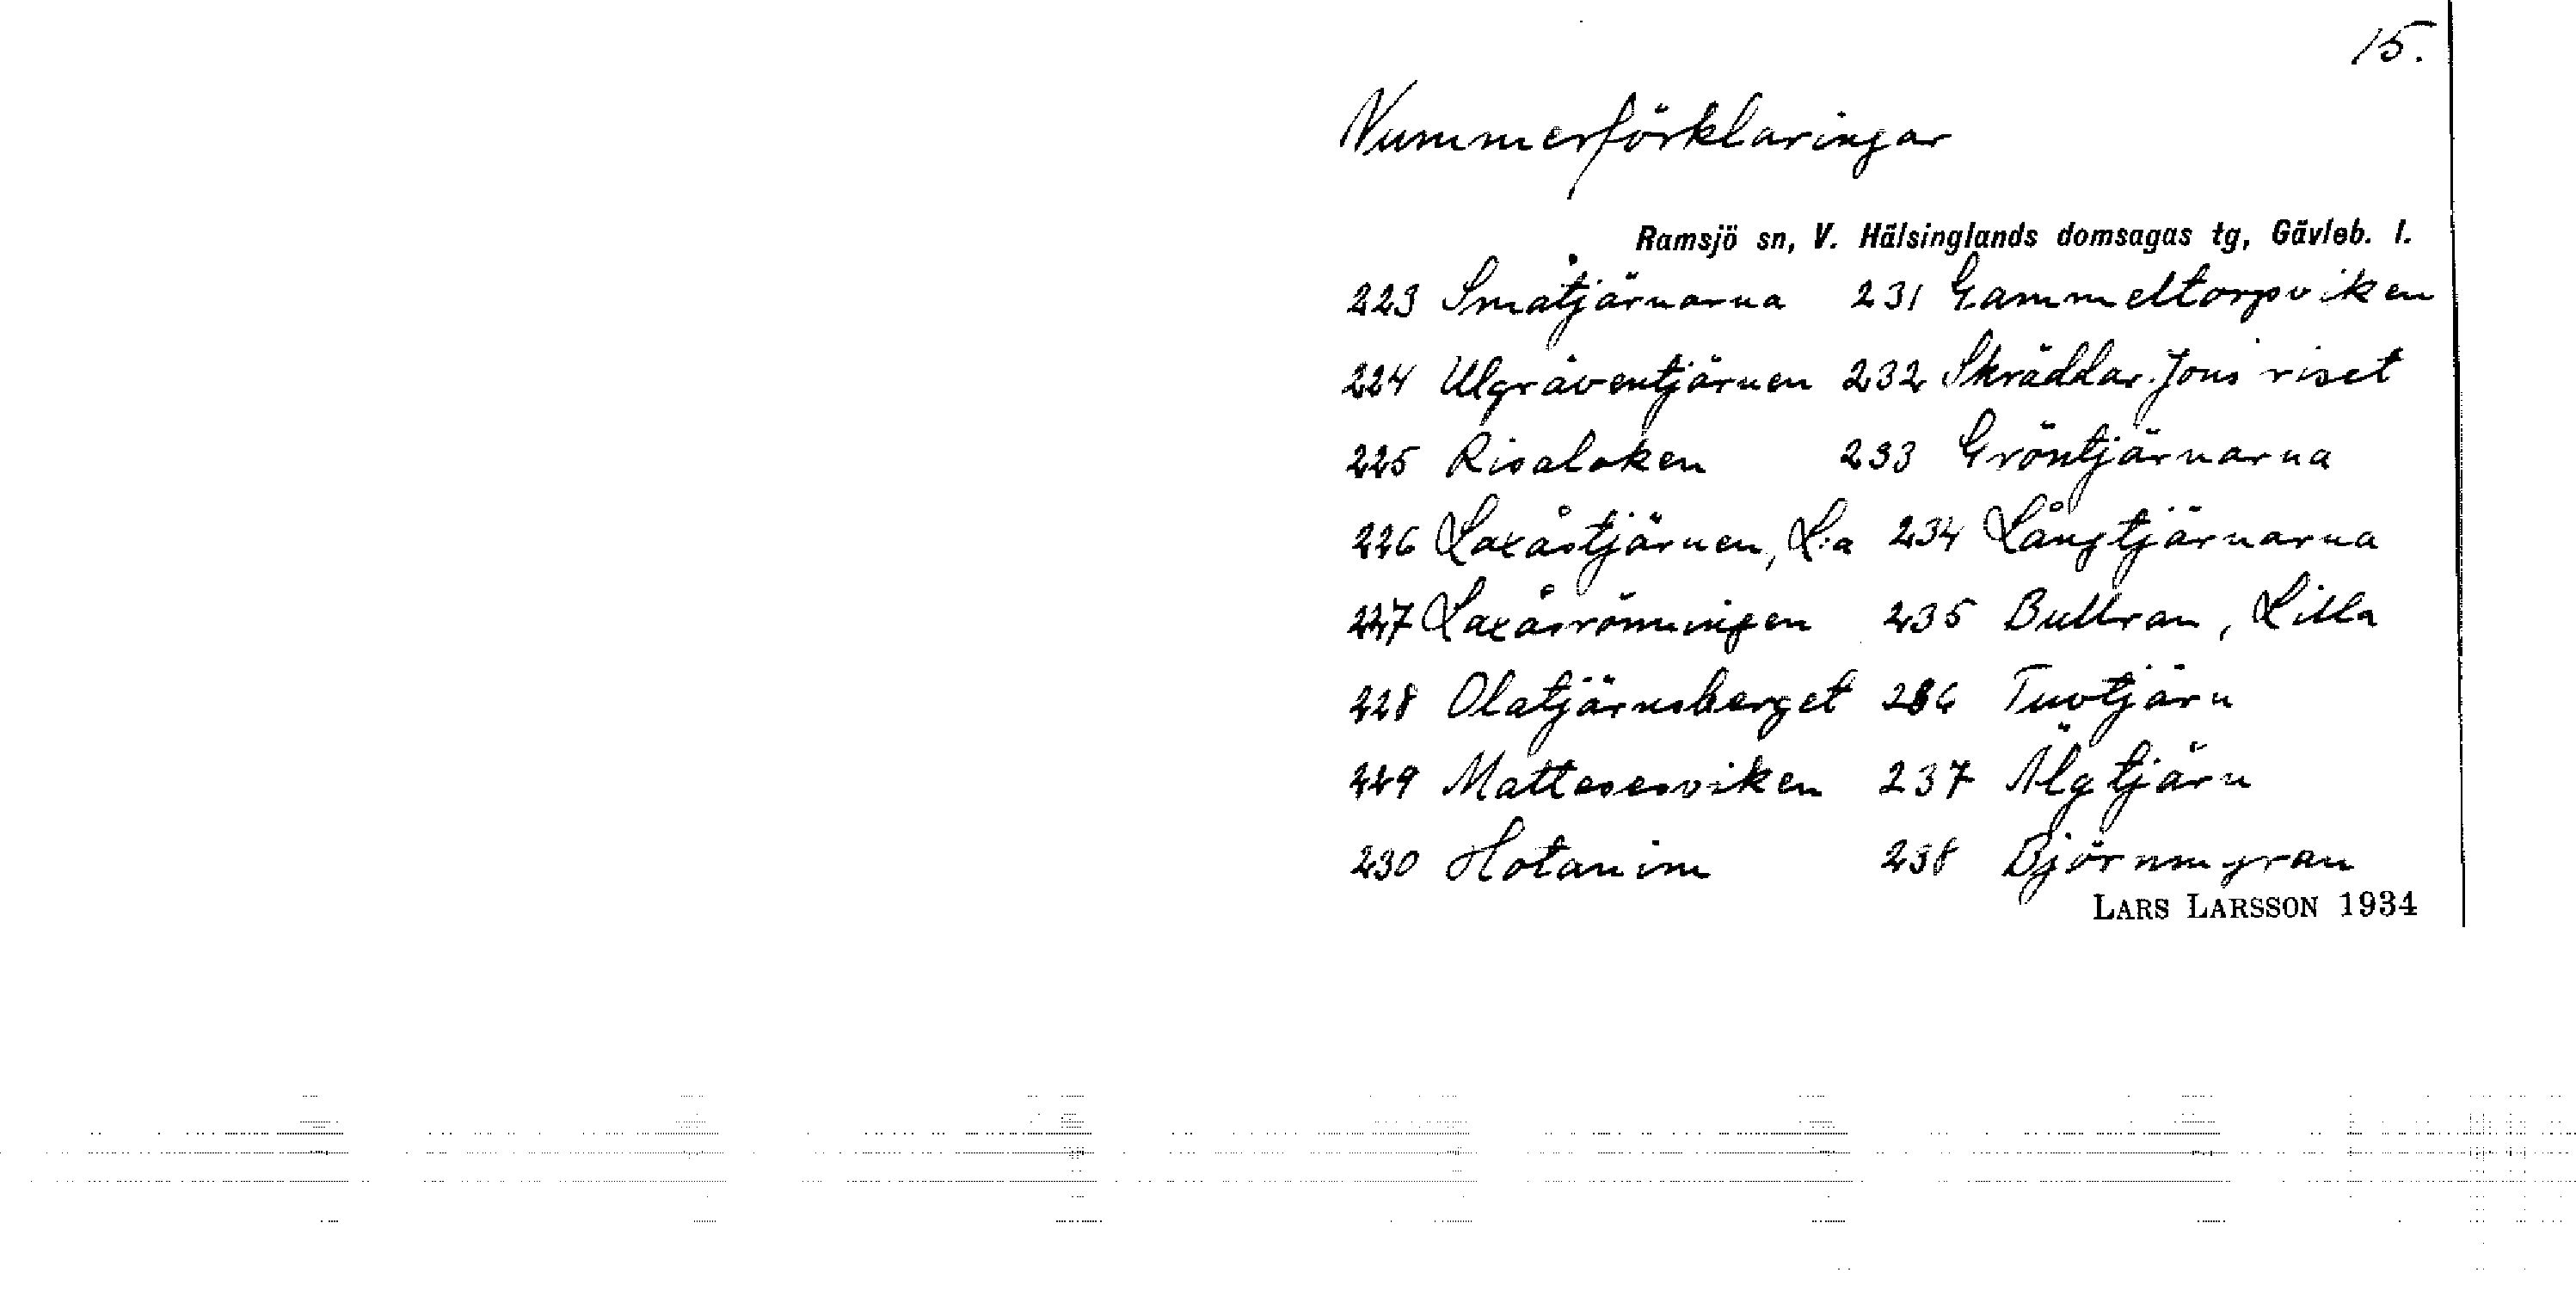 15.
Nummerförklaringar
Ramsjö sn, V. Hälsinglands domsagas tg, Gävleb. l.
223 Småtjärnarna 231 Gammeltorpviken
224 Ulgråventjärnen 232 Skräddar-Jons riset
225 Risaloken 233 Gröntjärnarna
226 Laxåstjärnen, L:a 234 Långtjärnarna
227 Laxåsrönningen 235 Bullran, Lilla
228 Olatjärnsberget 236 Tuvtjärn
229 Mattesesviken 237 Älgtjärn
230 Hotanim 238 Björnmyran
LARS LARSSON 1934